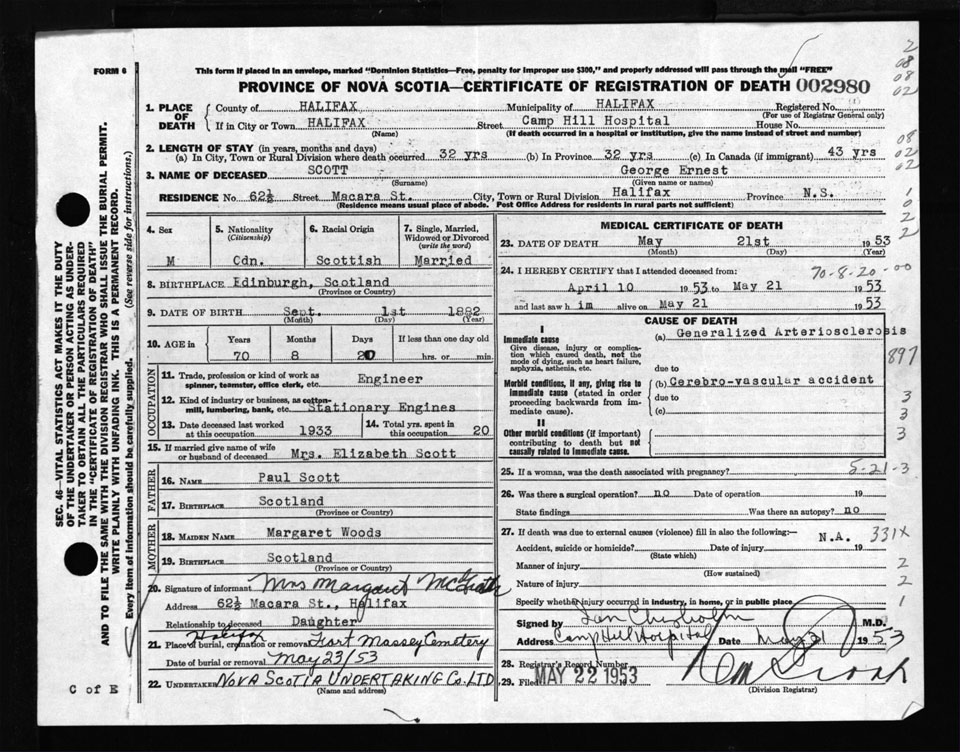 FORM 6
This form if placed in an envelope, marked "Dominion Statistics—Free, penalty for improper use $300," and properly addressed will pass through the mail "FREE"
PROVINCE OF NOVA SCOTIA—CERTIFICATE OF REGISTRATION OF DEATH 002980
1. PLACE OF DEATH
County of HALIFAX Municipality of HALIFAX Registered No.
(For use of Registrar General only)
If in City or Town HALIFAX Street Camp Hill Hospital House No.
(Name) (If death occurred in a hospital or institution, give the name instead of street and number)
2. LENGTH OF STAY (in years, months and days)
(a) In City, Town or Rural Division where death occurred 32 yrs (b) In Province 32 yrs (c) In Canada (if immigrant) 43 yrs
3. NAME OF DECEASED SCOTT George Ernest
(Surname) (Given name or names)
RESIDENCE No 62½ Street Macara St. City, Town or Rural Division Halifax Province N.S.
(Residence means usual place of abode. Post Office Address for residents in rural parts not sufficient)
4. Sex M
5. Nationality (Citizenship) Cdn.
6. Racial Origin Scottish
7. Single, Married, Widowed or Divorced (write the word) Married
8. BIRTHPLACE Edinburgh, Scotland
(Province or Country)
9. DATE OF BIRTH Sept. 1st 1882
(Month) (Day) (Year)
10. AGE in Years Months Days If less than one day old
70 8 20 hrs. or min.
OCCUPATION
11. Trade, profession or kind of work as spinner, teamster, office clerk, etc. Engineer
12. Kind of industry or business, as cotton-mill, lumbering, bank, etc. Stationary Engines
13. Date deceased last worked at this occupation 1933
14. Total yrs. spent in this occupation 20
15. If married give name of wife or husband of deceased Mrs. Elizabeth Scott
FATHER
16. NAME Paul Scott
17. BIRTHPLACE Scotland
(Province or Country)
MOTHER
18. MAIDEN NAME Margaret Woods
19. BIRTHPLACE Scotland
(Province or Country)
20. Signature of informant Mrs Margaret McGrath
Address 62½ Macara St., Halifax
Relationship to deceased Daughter
21. Place of burial, cremation or removal Halifax Fort Massey Cemetery
Date of burial or removal May 23/53
22. UNDERTAKER NOVA SCOTIA UNDERTAKING CO. LTD
(Name and address)
MEDICAL CERTIFICATE OF DEATH
23. DATE OF DEATH May 21st 1953
(Month) (Day) (Year)
24. I HEREBY CERTIFY that I attended deceased from: 70-8-20-00
April 10 1953 to May 21 1953
and last saw him alive on May 21 1953
CAUSE OF DEATH
I
Immediate cause
Give disease, injury or complication which caused death, not the mode of dying, such as heart failure, asphyxia, asthenia, etc.
(a) Generalized Arteriosclerosis
due to
Morbid conditions, if any, giving rise to immediate cause (stated in order proceeding backwards from immediate cause).
(b) Cerebro-vascular accident
due to
(c)
II
Other morbid conditions (if important) contributing to death but not causally related to immediate cause.
897
3
3
3
25. If a woman, was the death associated with pregnancy? 5-21-3
26. Was there a surgical operation? no Date of operation 19
State findings Was there an autopsy? no
27. If death was due to external causes (violence) fill in also the following:— N.A. 331X
Accident, suicide or homicide? Date of injury 19
(State which)
Manner of injury 2
(How sustained)
Nature of injury 2
Specify whether injury occurred in industry, in home, or in public place 1
Signed by Ian Chisholm M.D.
Address Camp Hill Hospital Date May 21 1953
28. Registrar's Record Number
29. Filed MAY 22 1953
(Division Registrar)
C of E
SEC. 46—VITAL STATISTICS ACT MAKES IT THE DUTY OF THE UNDERTAKER OR PERSON ACTING AS UNDERTAKER TO OBTAIN ALL THE PARTICULARS REQUIRED IN THE "CERTIFICATE OF REGISTRATION OF DEATH" AND TO FILE THE SAME WITH THE DIVISION REGISTRAR WHO SHALL ISSUE THE BURIAL PERMIT.
WRITE PLAINLY WITH UNFADING INK. THIS IS A PERMANENT RECORD.
Every item of information should be carefully supplied. (See reverse side for instructions.)
2
08
08
02
08
02
02
1
0
2
2